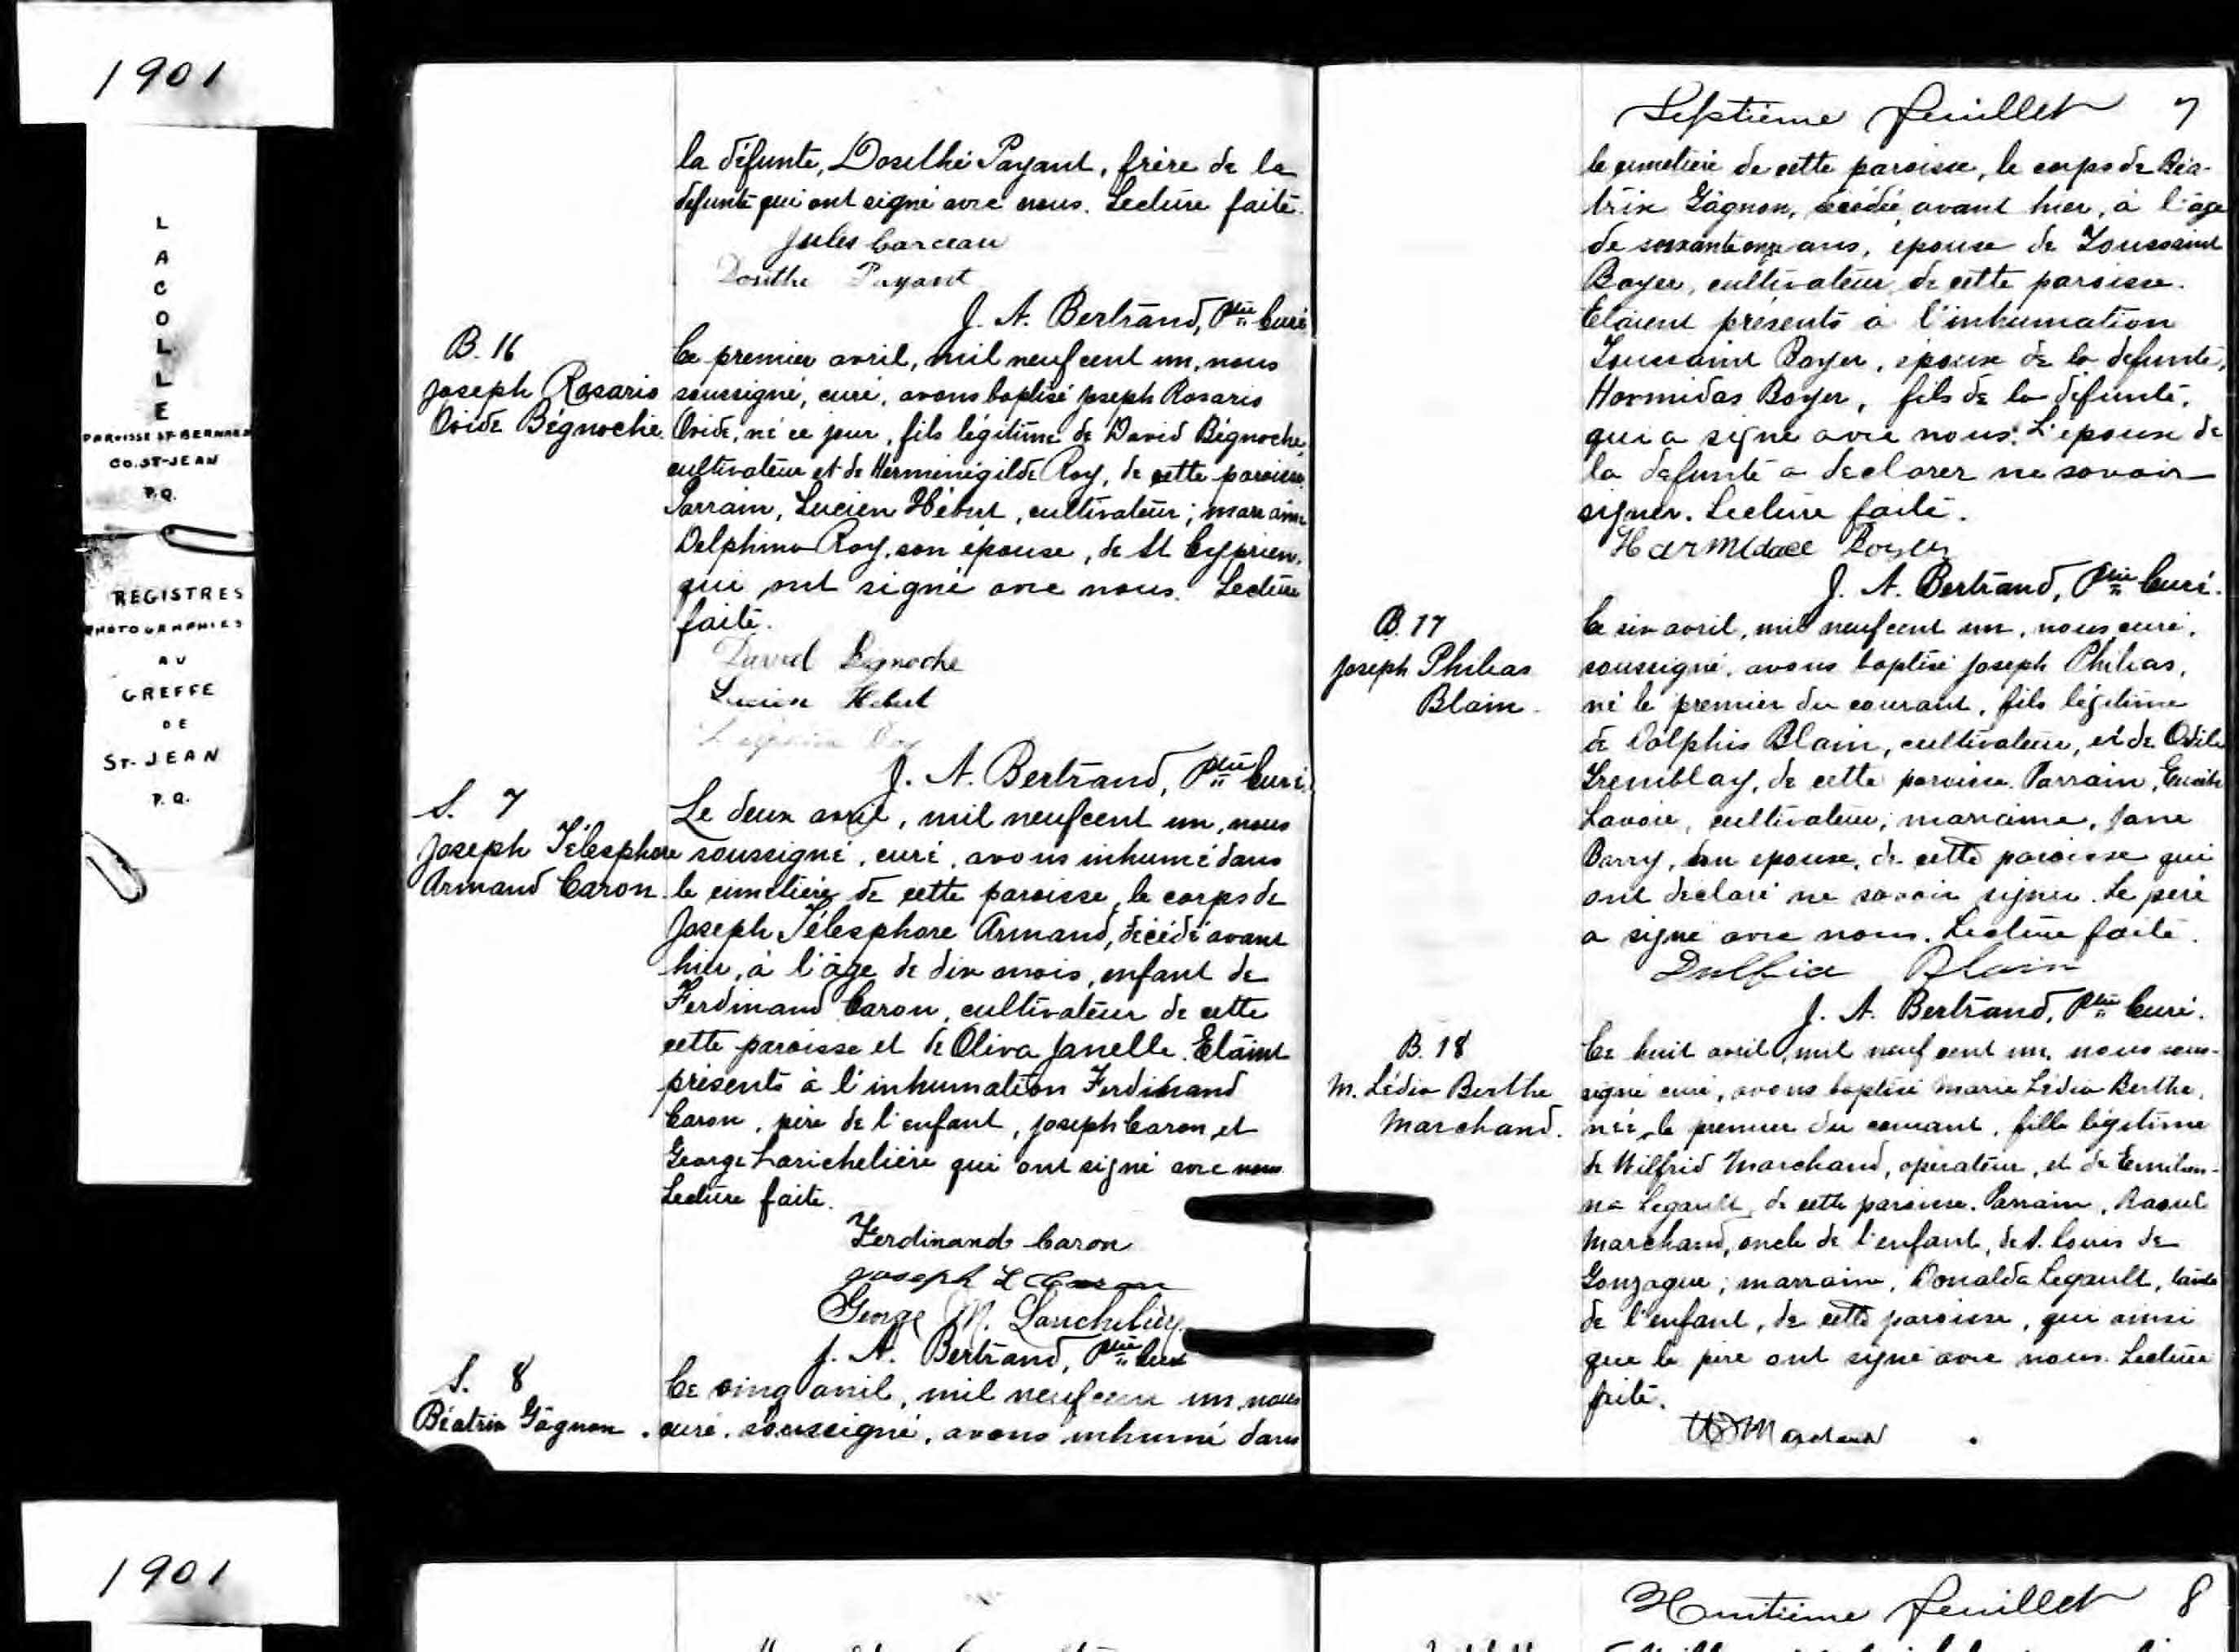 1901
L
A
C
O
L
L
E
PAROISSE ST-BERNARD
CO. ST-JEAN
P.Q.
REGISTRES
PHOTOGRAPHIES
AU
GREFFE
DE
ST-JEAN
P.Q.
la défunte, Dosithé Payant, frère de la
défunte qui ont signé avec nous. Lecture faite.
Jules Carceau
Dosithe Payant
J. A. Bertrand, Ptre Curé
B. 16
Joseph Rosario
Ovide Bégnoche.
Ce premier avril, mil neuf cent un, nous
soussigné, curé, avons baptisé Joseph Rosario
Ovide, né ce jour, fils légitime de David Bégnoche,
cultivateur et de Herménégilde Roy, de cette paroisse.
Parrain, Lucien Hébert, cultivateur; marraine
Delphine Roy, son épouse, de St Cyprien,
qui ont signé avec nous. Lecture
faite.
David Bégnoche
Lucien Hebert
J. A. Bertrand, Ptre Curé.
S. 7
Joseph Télesphore
Armand Caron.
Le deux avril, mil neuf cent un, nous
soussigné, curé, avons inhumé dans
le cimetière de cette paroisse, le corps de
Joseph Télesphore Armand, décédé avant
hier, à l'âge de dix mois, enfant de
Ferdinand Caron, cultivateur de cette
cette paroisse et de Oliva Janelle. Etaient
présents à l'inhumation Ferdinand
Caron, père de l'enfant, Joseph Caron et
George Laricheliére qui ont signé avec nous
Lecture faite.
Ferdinand Caron
Joseph L Caron
George M.
J. A. Bertrand, Ptre Curé
S. 8
Béatrix Gâgnon.
Ce cinq avril, mil neuf cent un, nous
curé, soussigné, avons inhumé dans
Septième feuillet 7
le cimetière de cette paroisse, le corps de Béa-
trix Gâgnon, décédée avant hier, à l'âge
de soixante onze ans, épouse de Toussaint
Boyer, cultivateur, de cette paroisse.
Etaient présents à l'inhumation
Toussaint Boyer, époux de la défunte,
Hormidas Boyer, fils de la défunte,
qui a signé avec nous. L'époux de
la défunte a declarer ne savoir
signer. Lecture faite.
J. A. Bertrand, Ptre Curé.
B. 17
Joseph Philias
Blain.
Ce six avril, mil neuf cent un, nous, curé,
soussigné, avons baptisé Joseph Philias,
né le premier du courant, fils légitime
de Dolphis Blain, cultivateur, et de Odile
Tremblay, de cette paroisse. Parrain,
Lavoie, cultivateur; marraine, Jane
Barry, son epouse, de cette paroisse qui
ont declaré ne savoir signer. Le père
a signé avec nous. Lecture faite.
Blain
J. A. Bertrand, Ptre Curé.
B. 18
M. Lédia Berthe
Marchand.
Ce huit avril, mil neuf cent un, nous sous-
signé curé, avons baptisé Marie Lédia Berthe,
née le premier du courant, fille légitime
de Wilfrid Marchand, opérateur, et de Emilien-
na Legault, de cette paroisse. Parrain, Raoul
Marchand, oncle de l'enfant, de S. Louis de
Gonzague; marraine, Donalda Legault, tante
de l'enfant, de cette paroisse, qui ainsi
que le père ont signé avec nous. Lecture
faite.
1901
Huitième feuillet 8